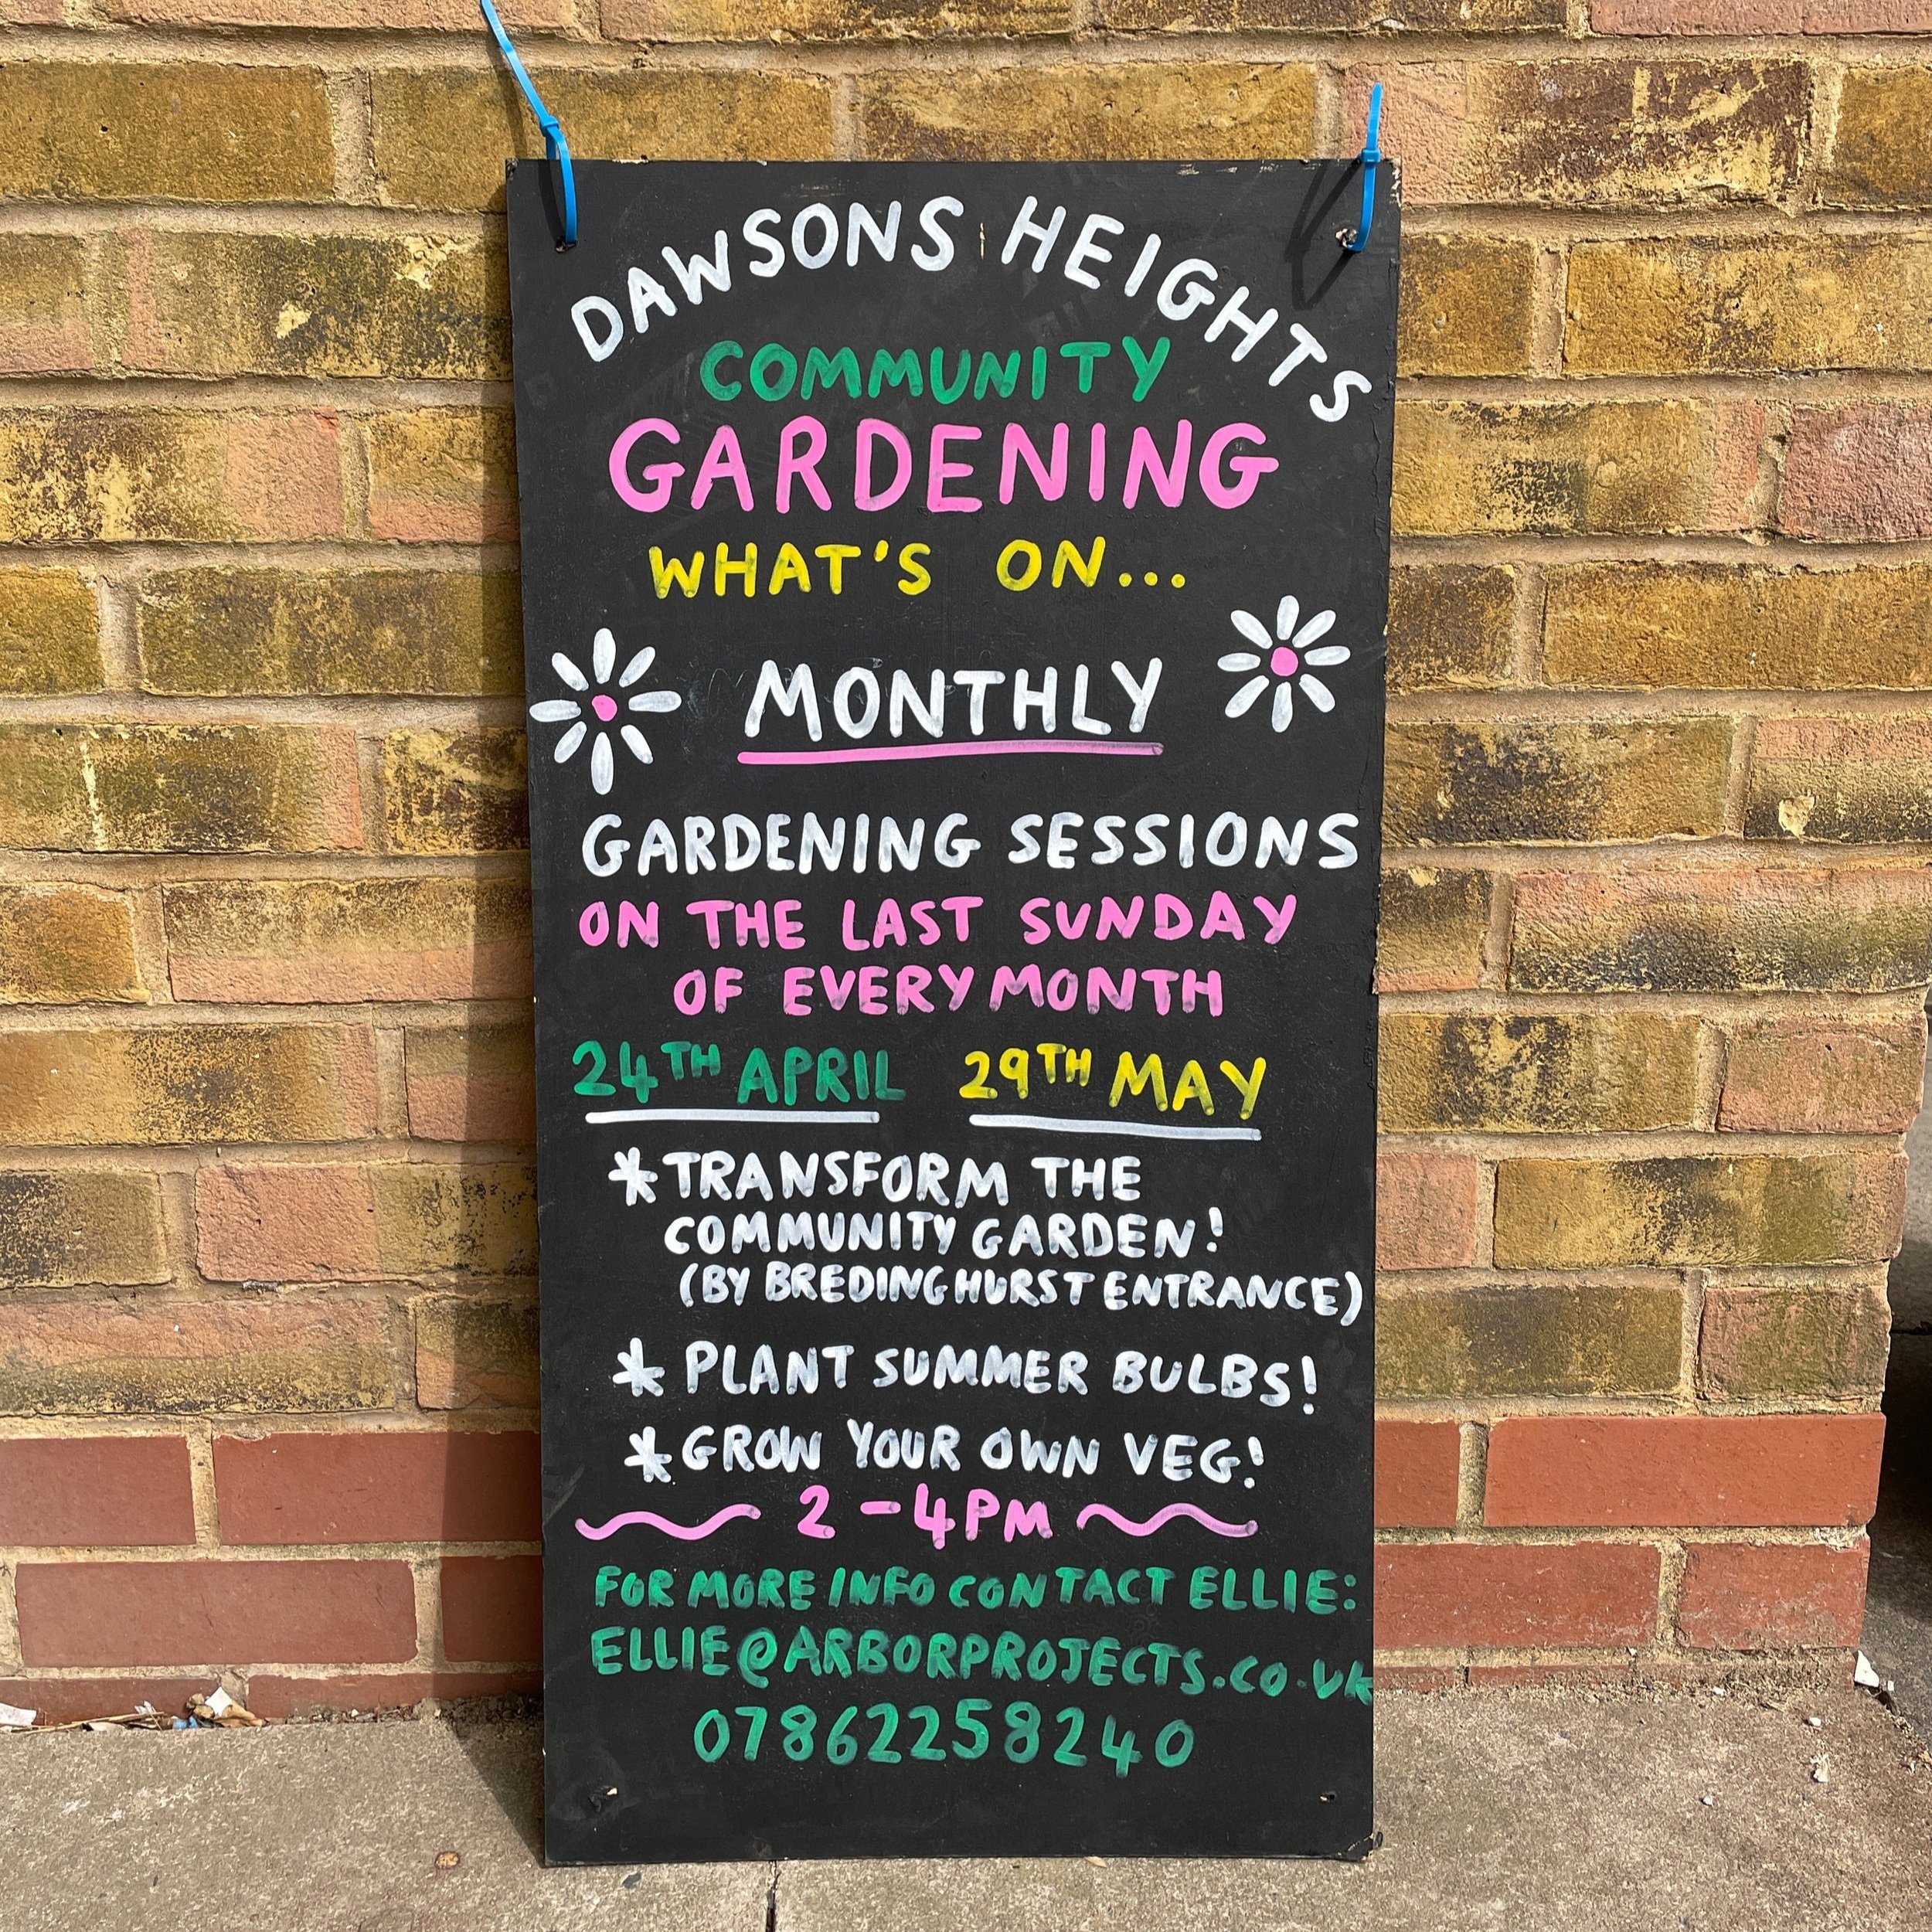 DAWSONS HEIGHTS
COMMUNITY
GARDENING
WHAT'S ON...
MONTHLY
GARDENING SESSIONS
ON THE LAST SUNDAY
OF EVERY MONTH
24TH APRIL 29TH MAY
* TRANSFORM THE
COMMUNITY GARDEN!
(BY BREDINGHURST ENTRANCE)
* PLANT SUMMER BULBS!
* GROW YOUR OWN VEG!
2-4PM
FOR MORE INFO CONTACT ELLIE:
ELLIE@ARBORPROJECTS.CO.UK
07862258240